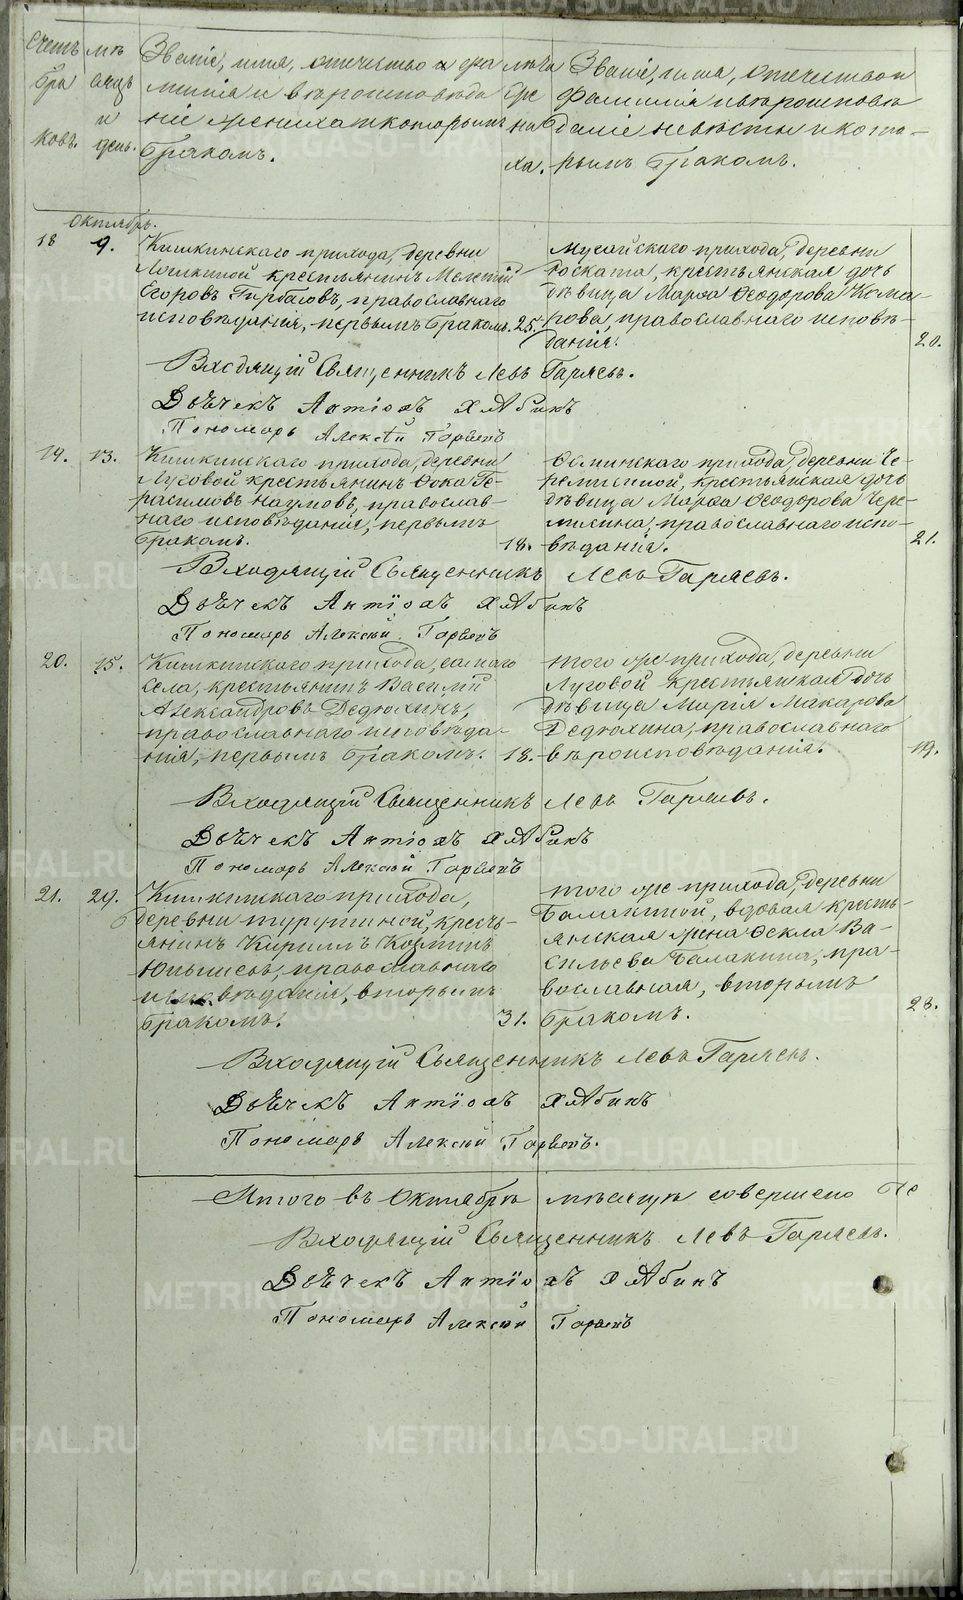 Счетъ бра ковъ.
мѣ сяцъ и день.
Званіе, имя, отечество и фа
милія и вѣроисповѣда
ніе жениха и которымъ
бракомъ.
лѣта же ни ха.
Званіе, имя, отечество и
фамилія и вѣроисповѣ
даніе невѣсты и кото-
рымъ бракомъ.
Октябрь.
18 9. Кишкинскаго прихода, деревни
крестьянинъ Мелетій
Егоровъ Гирбасовъ, православнаго
исповѣданія, первымъ бракомъ. 25.
Мусайскаго прихода, деревни
крестьянская дочь
дѣвица Марѳа Ѳеодорова Кома-
рова, православнаго исповѣ-
данія. 20.
Входящій Священникъ Левъ Гаряевъ.
Дьячекъ Антіохъ Хлябинъ
Пономарь Алексѣй
19. 13. Кишкинскаго прихода, деревни
Луговой крестьянинъ Ѳока Ге-
расимовъ Наумовъ, православ-
наго исповѣданія, первымъ
бракомъ. 18.
прихода, деревни Че-
ремисиной, крестьянская дочь
дѣвица Марѳа Ѳеодорова Чере-
мисина, православнаго испо-
вѣданія. 21.
Входящій Священникъ Левъ Гаряевъ.
Дьячекъ Антіохъ Хлябинъ
Пономарь Алексѣй
20. 15. Кишкинскаго прихода, самаго
села, крестьянинъ Василій
Александровъ Дедюхинъ,
православнаго исповѣда-
нія, первымъ бракомъ. 18.
того же прихода, деревни
Луговой крестьянская дочь
дѣвица Марія Макарова
Дедюхина, православнаго
вѣроисповѣданія. 19.
Входящій Священникъ Левъ Гаряевъ.
Дьячекъ Антіохъ Хлябинъ
Пономарь Алексѣй
21. 29. Кишкинскаго прихода,
деревни кресть-
янинъ Кириллъ
православнаго
исповѣданія, вторымъ
бракомъ. 31.
того же прихода, деревни
Балакиной, вдовая кресть-
янская жена Ѳекла Ва-
сильева Балакина, пра-
вославная, вторымъ
бракомъ. 23.
Входящій Священникъ Левъ Гаряевъ.
Дьячекъ Антіохъ Хлябинъ
Пономарь Алексѣй
Итого въ Октябрѣ мѣсяцѣ совершено
Входящій Священникъ Левъ Гаряевъ.
Дьячекъ Антіохъ Хлябинъ
Пономарь Алексѣй
METRIKI.GASO-URAL.RU